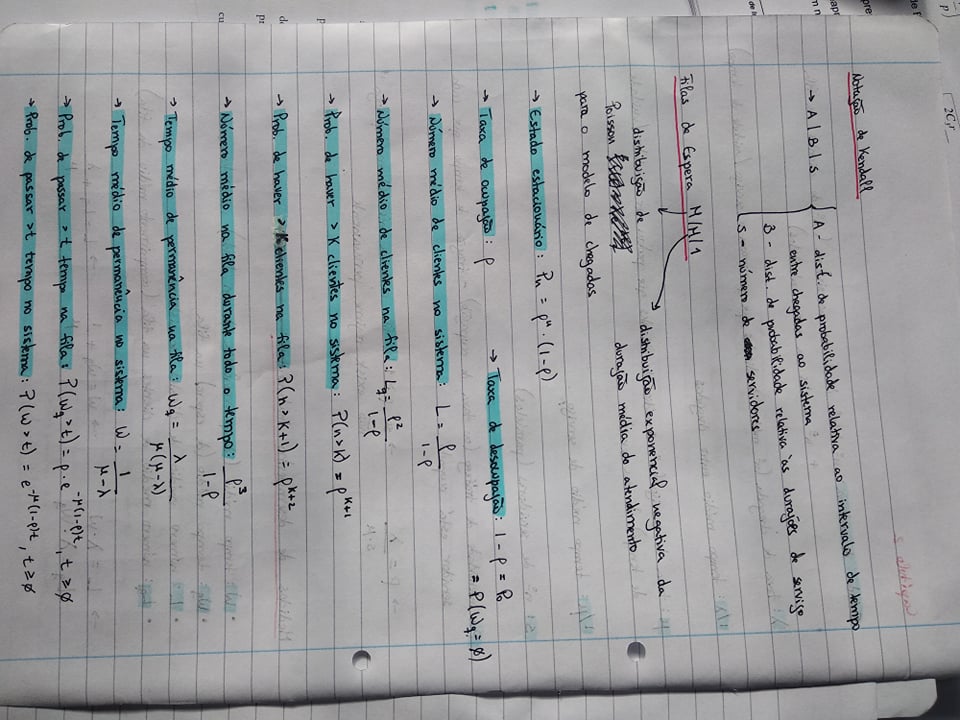 2C₁r
Notação de Kendall
→ A | B | S { A - dist. de probabilidade relativa ao intervalo de tempo
entre chegadas ao sistema
B - dist. de probabilidade relativa às durações de serviço
S - número de servidores
Filas de Espera M/M/1
distribuição de
Poisson
para o modelo de chegadas
distribuição exponencial negativa da
duração média do atendimento
→ Estado estacionário: Pn = ρⁿ · (1-ρ)
→ Taxa de ocupação: ρ → Taxa de desocupação: 1 - ρ = P₀
= P(Wq = ∅)
→ Número médio de clientes no sistema: L = ρ / (1-ρ)
→ Número médio de clientes na fila: Lq = ρ² / (1-ρ)
→ Prob. de haver > K clientes no sistema: P(n>k) = ρ^(K+1)
→ Prob. de haver > K clientes na fila: P(n > K+1) = ρ^(K+2)
→ Número médio na fila durante todo o tempo: ρ³ / (1-ρ)
→ Tempo médio de permanência na fila: Wq = λ / (μ(μ-λ))
→ Tempo médio de permanência no sistema: W = 1 / (μ-λ)
→ Prob. de passar >t tempo na fila: P(Wq>t) = ρ · e^(-μ(1-ρ)t), t ≥ ∅
→ Prob. de passar >t tempo no sistema: P(W>t) = e^(-μ(1-ρ)t), t ≥ ∅